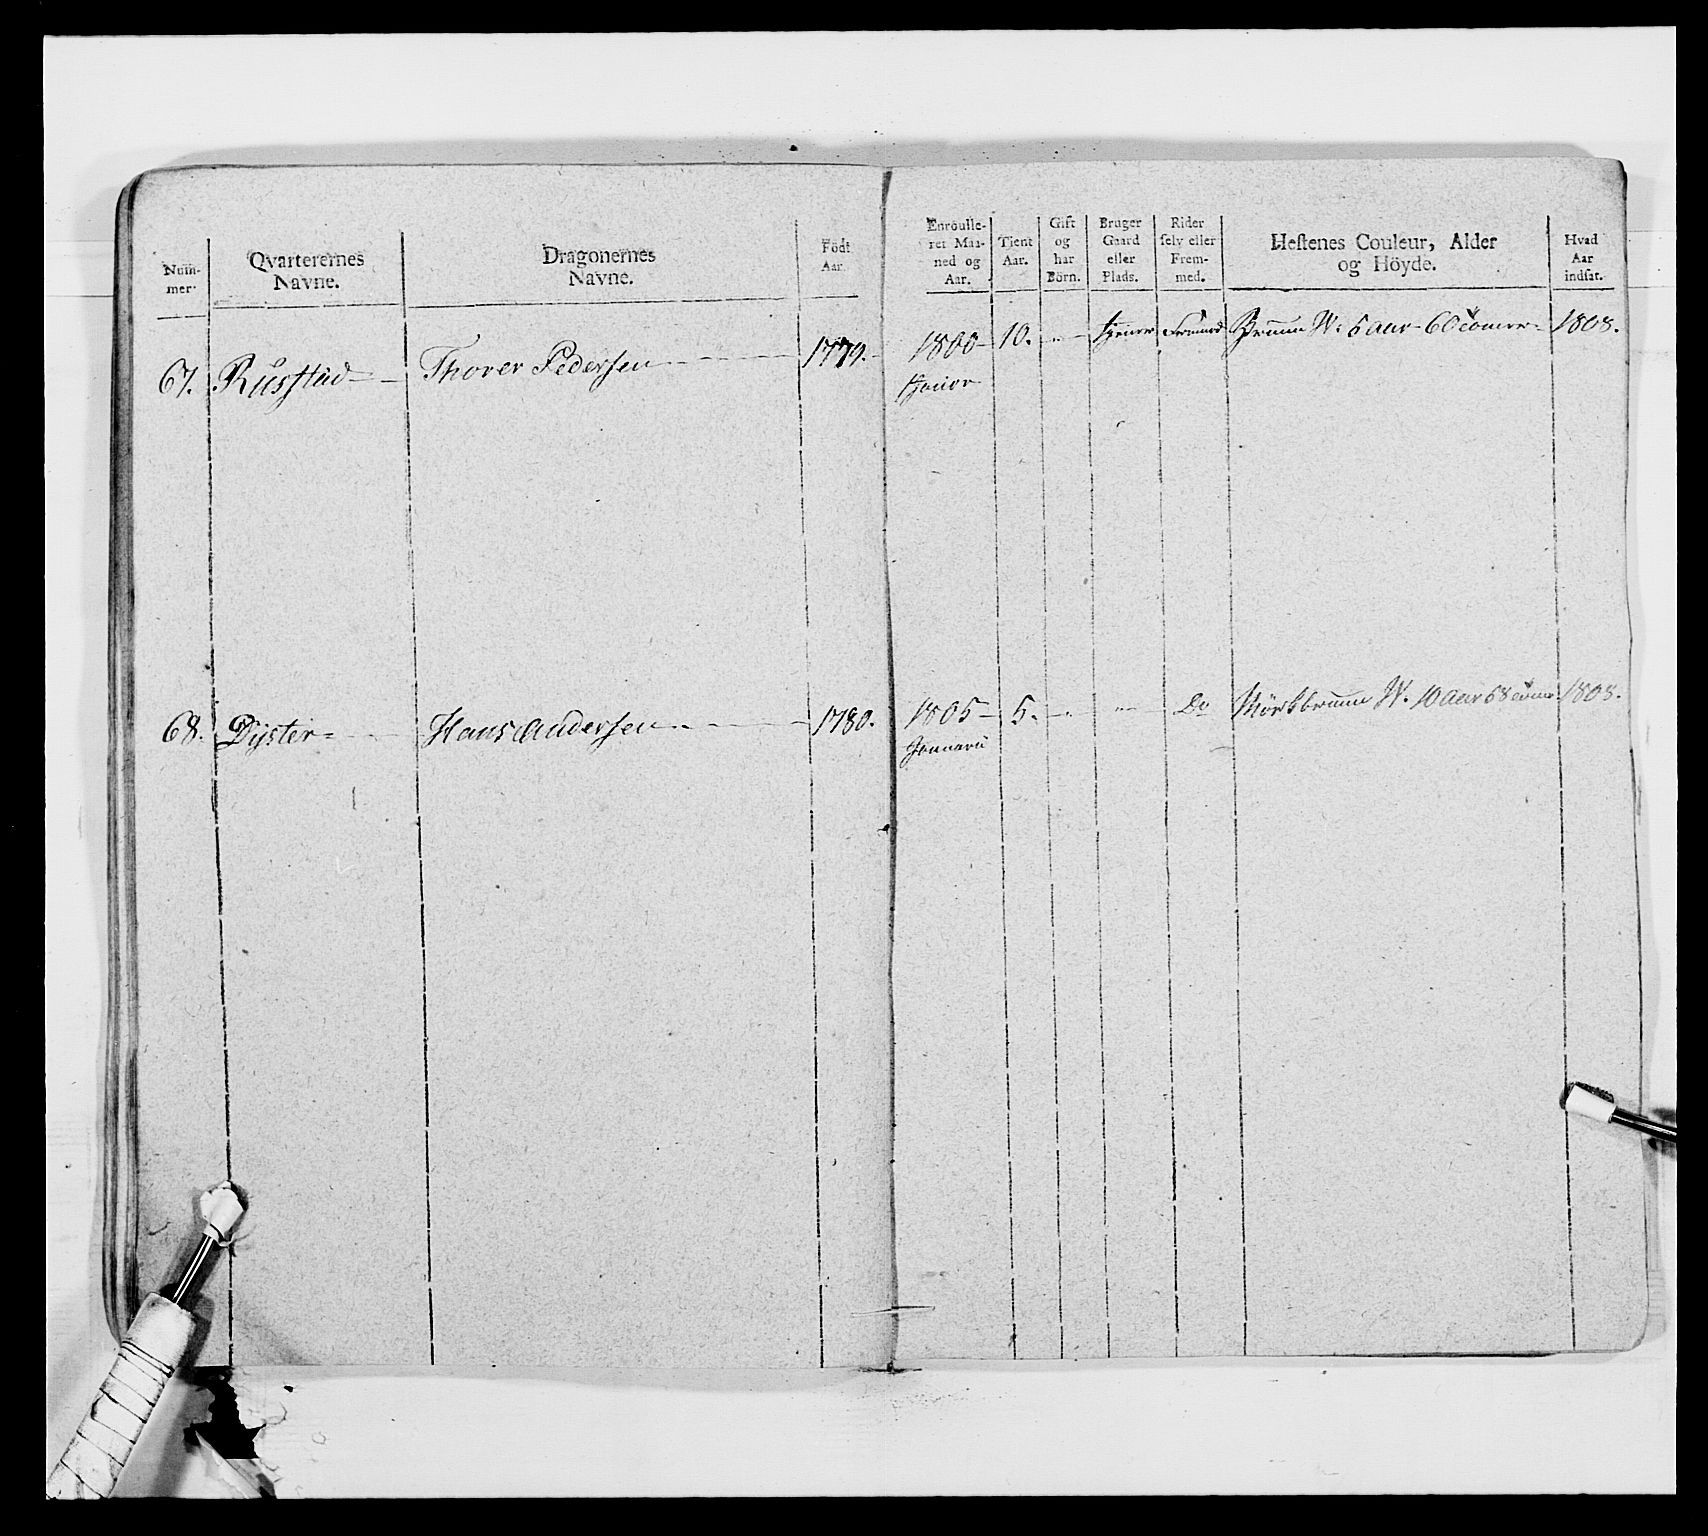 Num-
mer.
Qvarterernes
Navne.
Dragonernes
Navne.
Födt
Aar.
Enroulle-
ret Maa-
ned og
Aar.
Tient
Aar.
Gift
og
har
Börn.
Bruger
Gaard
eller
Plads.
Rider
selv eller
Frem-
med.
Hestenes Couleur, Alder
og Höyde.
Hvad
Aar
indsat.
67. Rustad Thover Pedersen 1779. 1800 10. tjener Fremmed Bruun W: 6 aar 60 1808.
68. Dyster Hans Andersen 1780. 1805 5. Do Mörkbruun W. 10 aar 58 1808.
Januarii